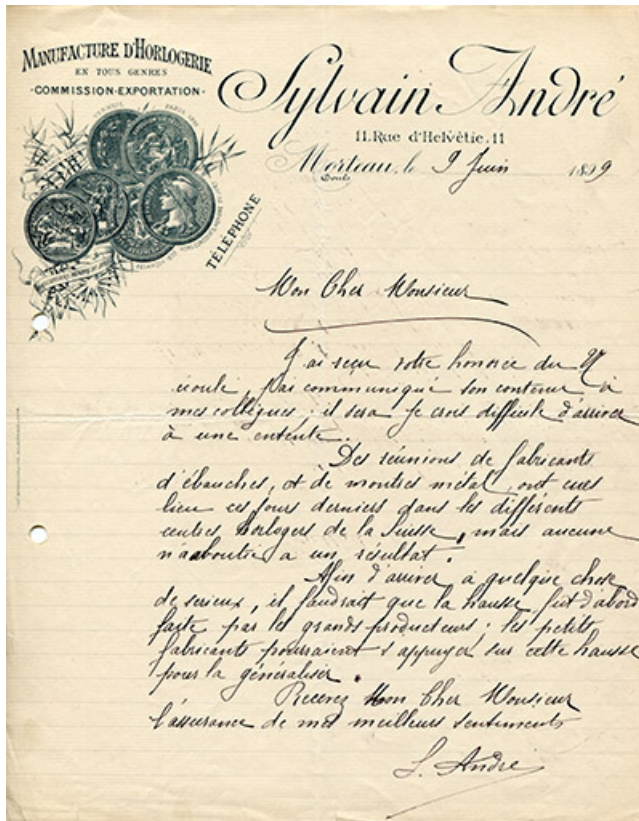 MANUFACTURE D'HORLOGERIE
EN TOUS GENRES
COMMISSION-EXPORTATION
Sylvain André
11. Rue d'Helvétie. 11
Morteau, le 9 Juin 1899
Doubs
TÉLÉPHONE
Mon Cher Monsieur
J'ai reçu votre honorée du 27
écoulé, j'ai communiqué son contenu à
mes collègues ; il sera je crois difficile d'arriver
à une entente.
Des réunions de fabricants
d'ébauches, et de montres métal, ont eues
lieu ces jours derniers dans les différents
centres horlogers de la Suisse, mais aucune
n'a aboutie à un résultat.
Afin d'arriver à quelque chose
de serieux, il faudrait que la hausse fut d'abord
faite par les grands producteurs ; les petits
fabricants pourraient s'appuyer sur cette hausse
pour la généraliser.
Recevez Mon Cher Monsieur
l'assurance de mes meilleurs sentiments
S. André